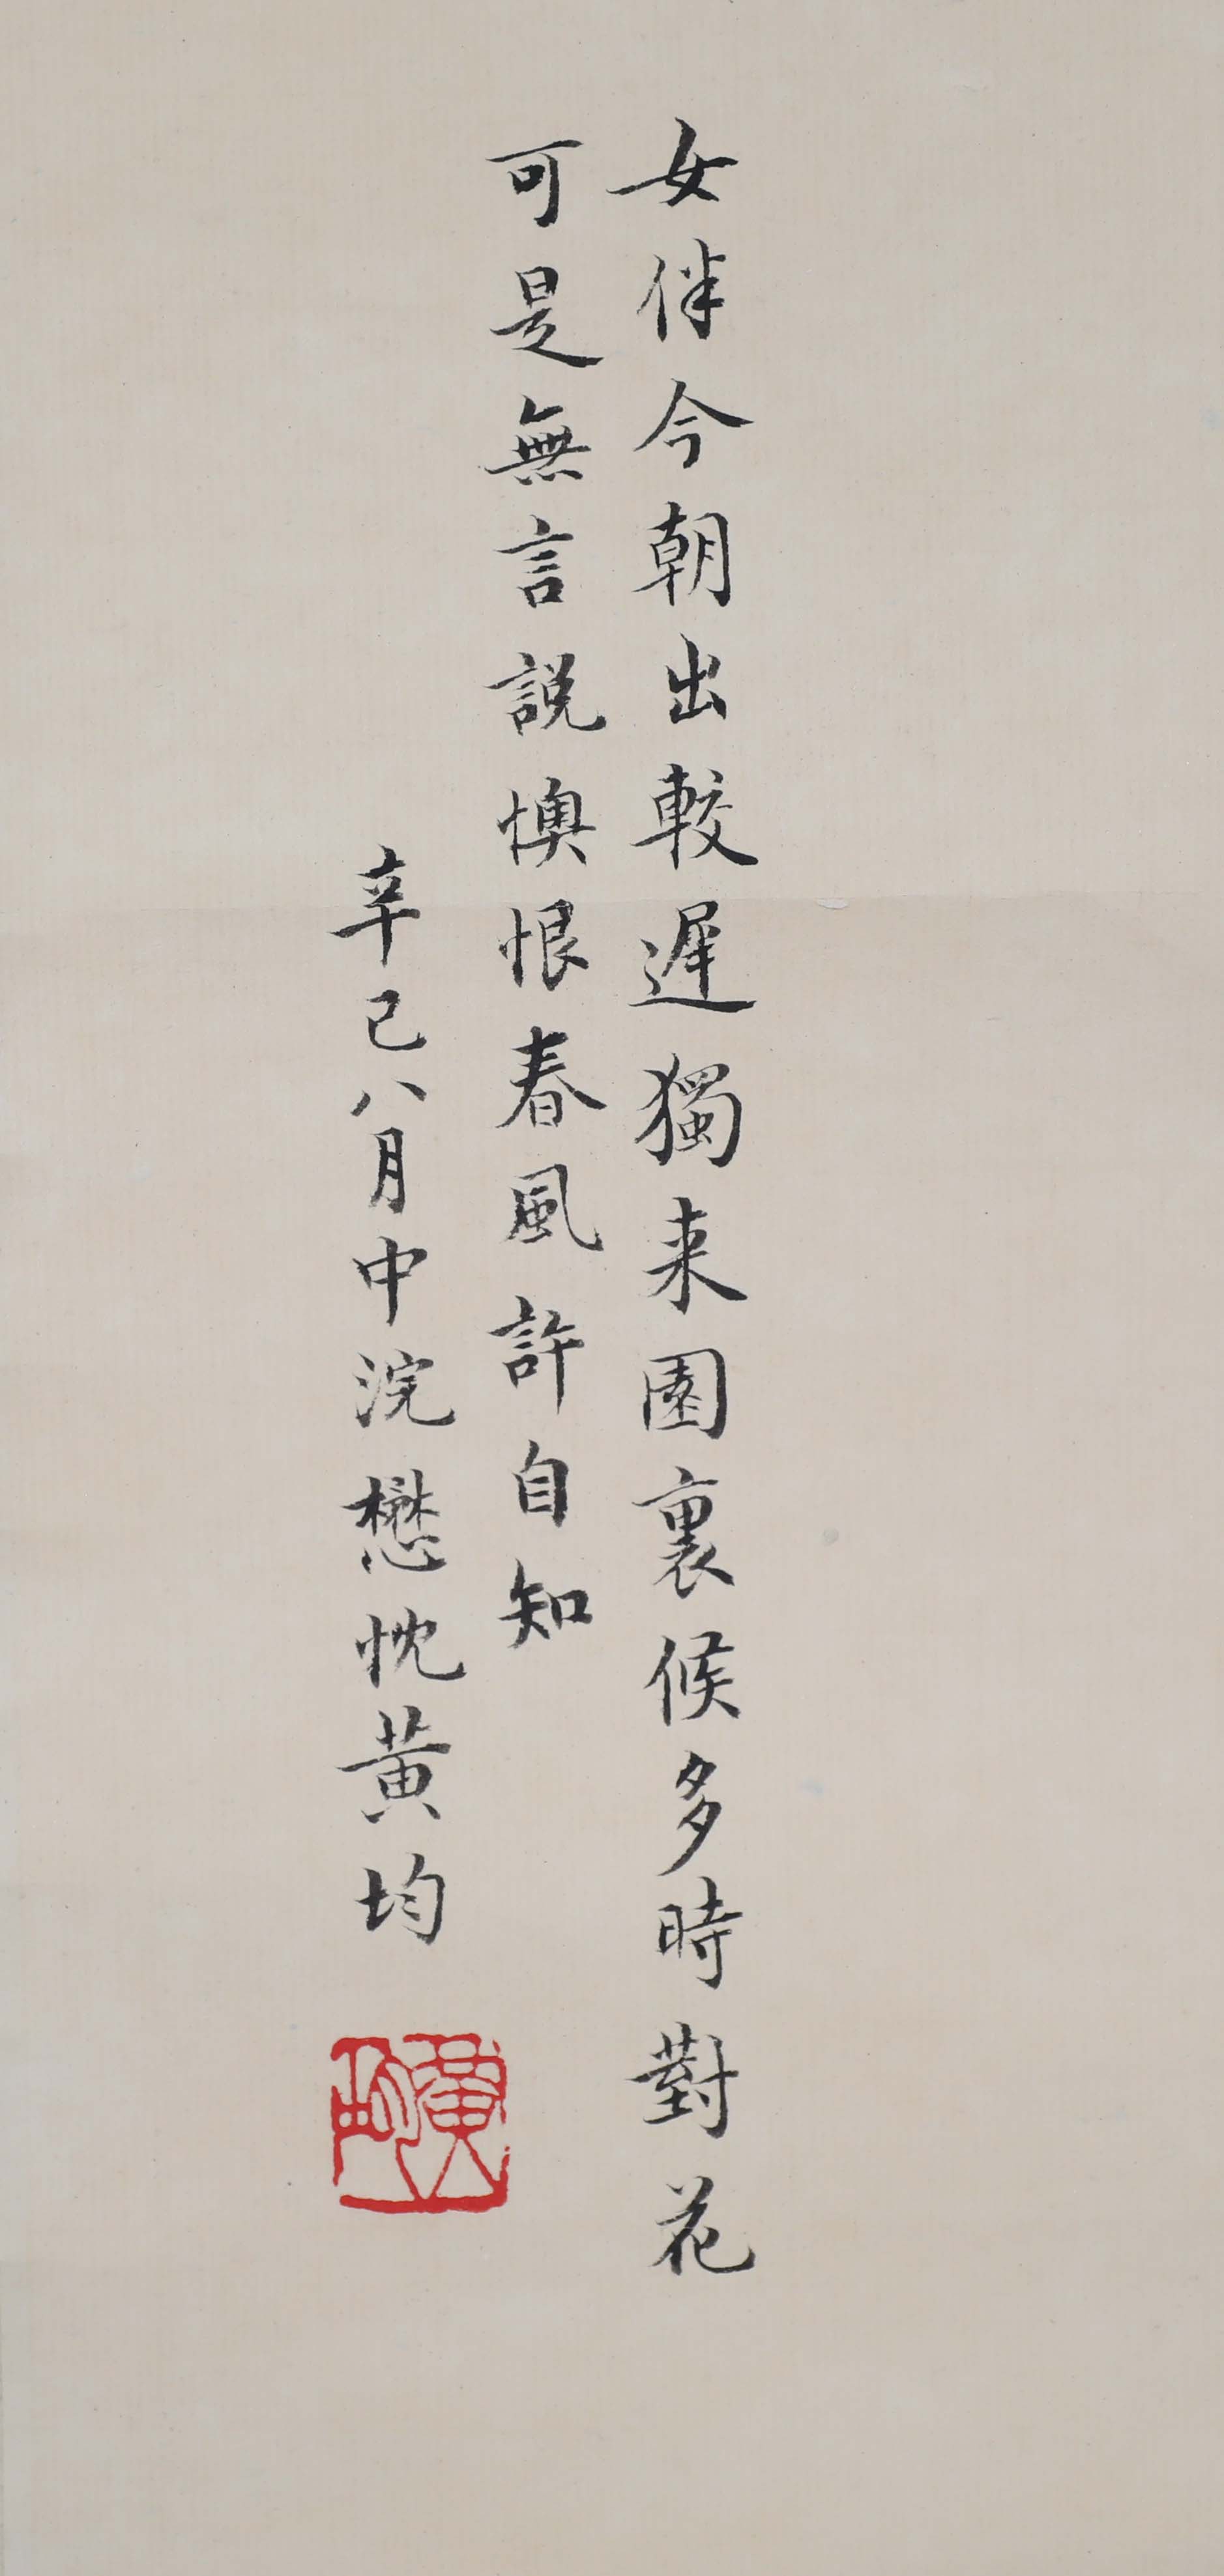 女伴今朝出較遲獨来園裏候多時對花
可是無言説懊恨春風許自知
辛巳八月中浣懋忱黄均
黄均